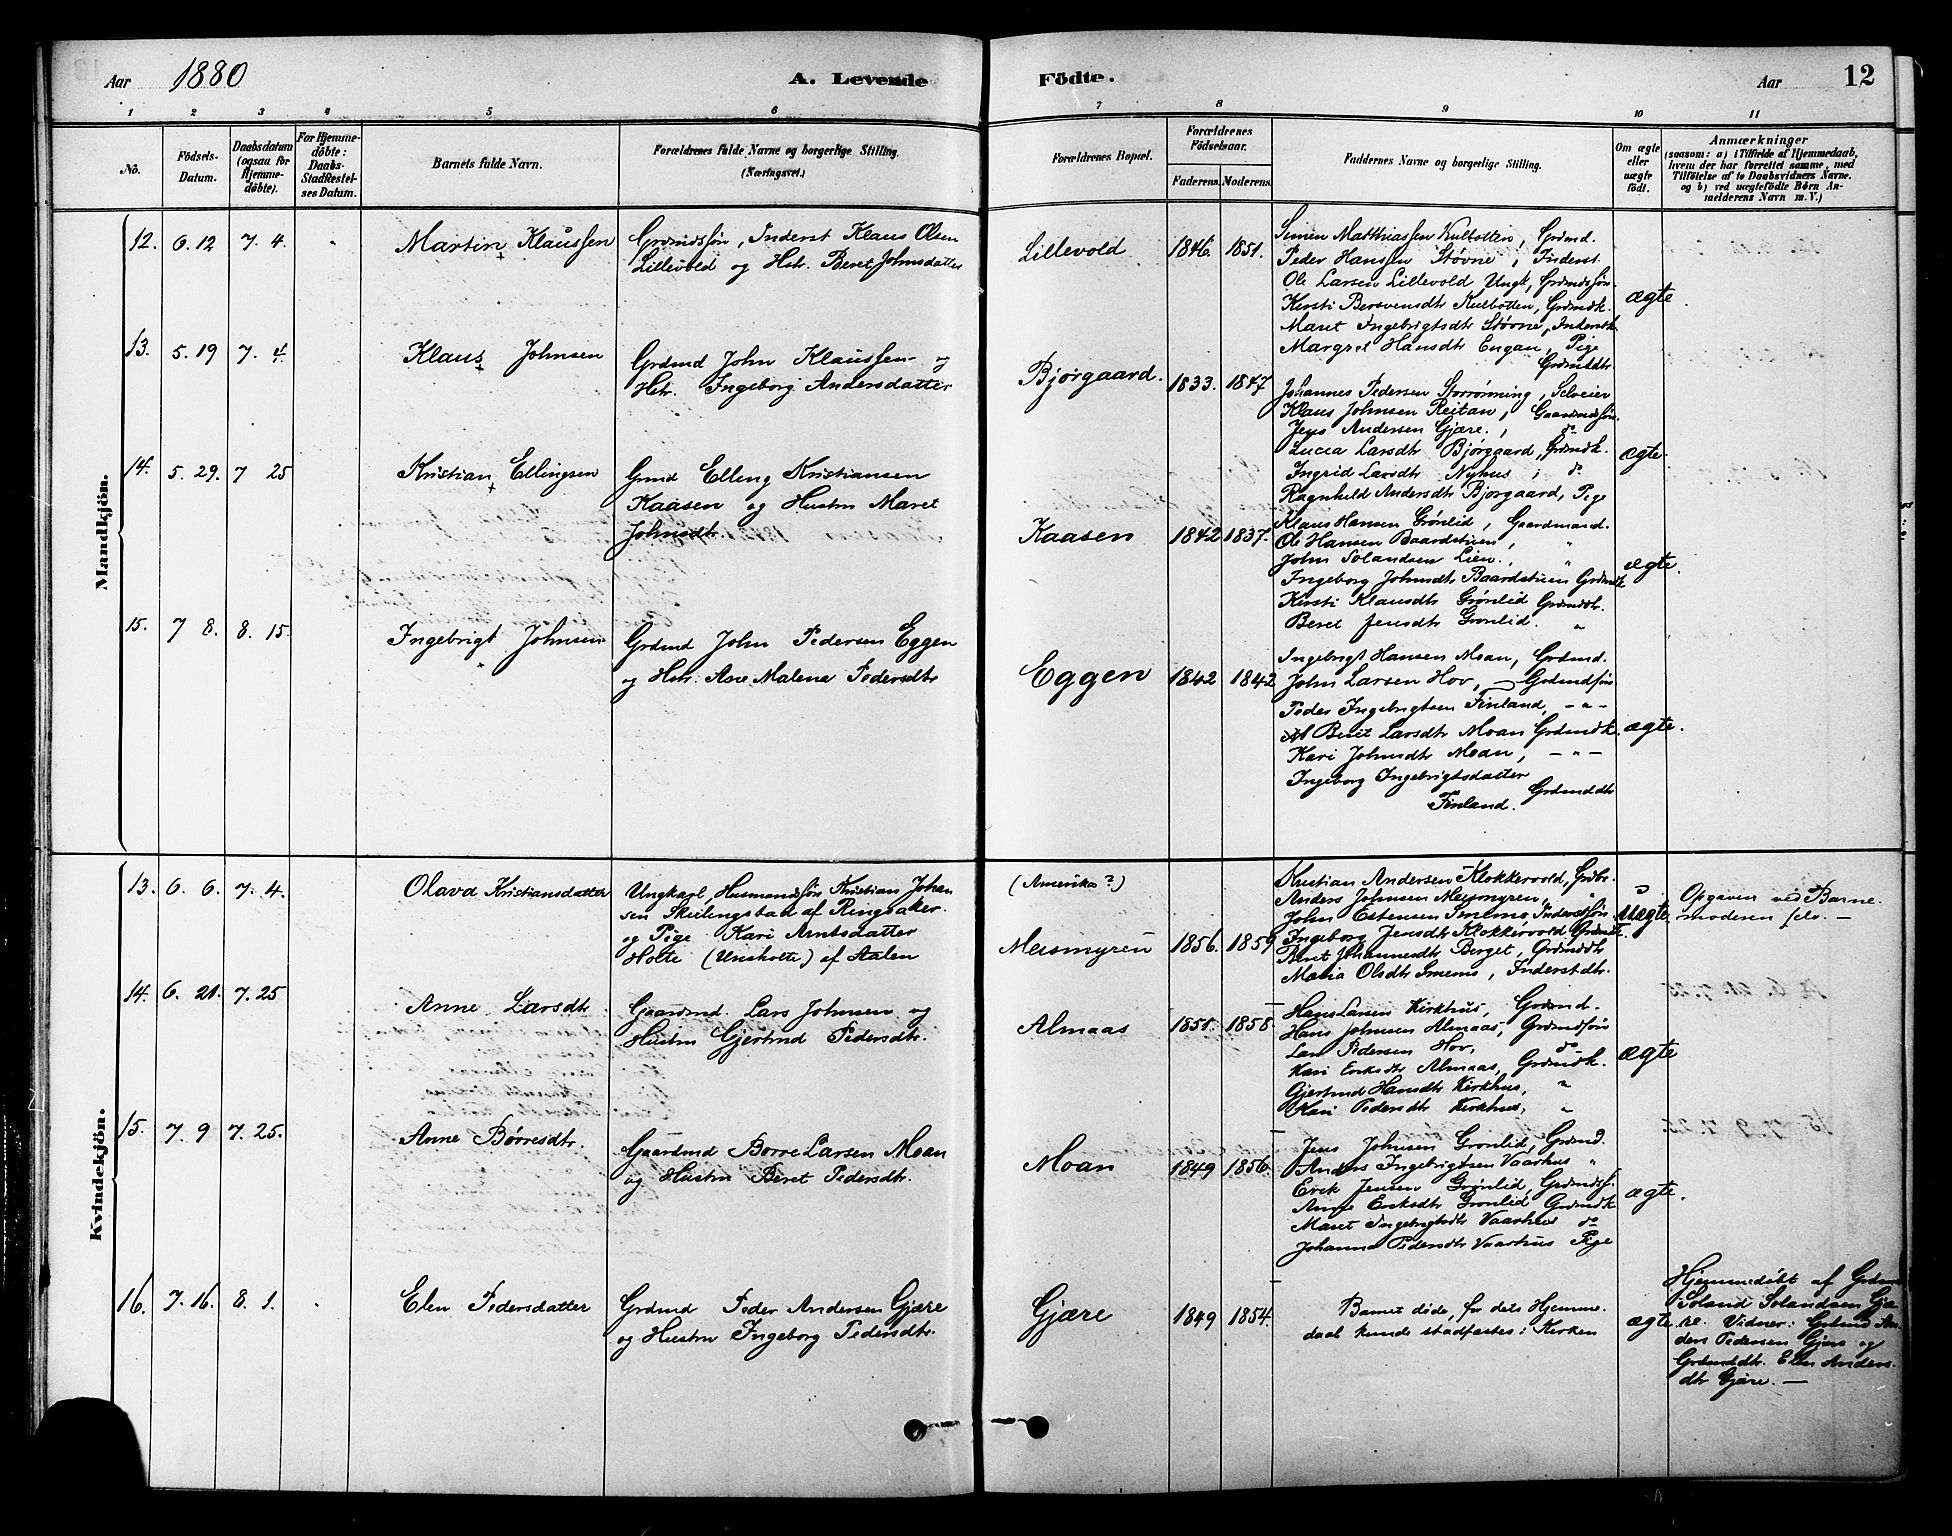 Aar 1880 A. Levende Födte. Aar 12
1 2 3 4 5 6 7 8 9 10 11
No.
Födsels-
Datum.
Daabsdatum
(ogsaa for
Hjemme-
döbte).
For Hjemme-
döbte:
Daabs-
Stadfæstel-
ses Datum.
Barnets fulde Navn.
Forældrenes fulde Navne og borgerlige Stilling.
(Næringsvei.)
Forældrenes Bopæl.
Forældrenes
Födselsaar.
Faderens. Moderens.
Faddernes Navne og borgerlige Stilling.
Om ægte
eller
uægte
födt.
Anmærkninger
(saasom: a) i Tilfælde af Hjemmedaab,
hvem der har forrettet samme, med
Tilföielse af to Daabsvidners Navne.
og b) ved uægtefödte Börn An-
melderens Navn m. V.)
Mandkjön.
12. 6. 12 7. 4. Martin Klaussen
Grdmdsøn, Inderst Klaus Olsen
Lillevold og Hstr. Beret Johnsdatter
Lillevold 1846. 1851.
Simen Matthiassen Kulbotten, Grdmd.
Peder Hansen Støvne, Inderst.
Ole Larsen Lillevold Ungk, Grdmdsøn.
Kirsti Bersvendsdtr Kulbotten, Grdmdk.
Maret Ingebrigtsdtr Støvne, Inderstk.
Margret Hansdtr Engan, Pige
Grdmddtr
ægte.
13. 5. 19 7. 4. Klaus Johnsen
Grdmd John Klaussen og
Hstr. Ingeborg Andersdatter
Bjørgaard. 1833. 1847
Johannes Pedersen Storrønning, Selveier
Klaus Johnsen Reitan, Gaardmdsøn.
Jens Andersen Gjære, do
Lucia Larsdtr Bjørgaard, Grdmdk.
Ingrid Larsdtr Nyhus, do
Ragnhild Andersdtr Bjørgaard, Pige
ægte.
14. 5. 29. 7 25 Kristian Ellingsen
Grmd Elling Kristiansen
Kaasen og Hustru Maret
Johnsdtr
Kaasen 1842 1837.
Klaus Hansen Grønlid, Gaardmand.
Ole Hansen Baardstuen, "
John Solandsen Lien, "
Ingeborg Johnsdtr Baardstuen Grdmdk
Kirsti Klausdtr Grønlid Grdmddtr.
Beret Jensdtr Grønlid. "
ægte.
15. 7 8. 8. 15. Ingebrigt Johnsen
Grdmd John Pedersen Eggen
og Hstr. Ane Malena Pedersdtr
Eggen 1842 1842
Ingebrigt Hansen Moan, Grdmd.
John Larsen Hov, Grdmdsøn
Peder Ingebrigtsen Finland, — " —
Berit Larsdtr Moan Grdmdk.
Kari Johnsdtr Moan, — " —
Ingeborg Ingebrigtsdatter
Finland. Grdmddtr
ægte.
Kvindekjön.
13. 6. 6. 7. 4. Olava Kristiansdatter
Ungkarl, Husmandsøn Kristian Johan
sen Skielingstad af Ringsaker.
og Pige Kari Arntsdatter
Holte (Unsholte) af Aalen
(Amerika?)
Meismyren 1856. 1859
Kristian Andersen Klokkervold, Grdbr.
Anders Johnsen Meismyren, "
John Estensen Smemo, Inderstsøn.
Ingeborg Jensdtr Klokkervold Grdmdk.
Beret Johannesdtr Berget, Grdmddtr
Maria Olsdtr Smemo, Inderstdtr.
uægte.
Opgaven ved Barne-
moderen selv. —
14. 6. 21. 7. 25 Anne Larsdtr
Gaardmd. Lars Johnsen og
Hustru Gjertrud Pedersdtr.
Almaas 1851. 1858
Hans Larsen Kirkhus, Grdmd.
Hans Johnsen Almaas, Grdmdsøn
Lars Pedersen Hov, do
Kari Eriksdtr Almaas, Grdmdk.
Gjertrud Hansdtr Kirkhus, "
Kari Pedersdtr Kirkhus, "
ægte
15. 7. 9 7. 25. Anne Børresdtr.
Gaardmd Børre Larsen Moan
og Hustru Beret Pedersdtr.
Moan 1849 1856.
Jens Johnsen Grønlid, Grdmd.
Anders Ingebrigtsen Vaarhus "
Erik Jensen Grønlid, Grdmdsø.
Anne Eriksdtr Grønlid Grdmdk
Maret Ingebrigtsdtr Vaarhus do
Johanna Pedersdtr Vaarhus Pige
ægte.
16. 7. 16. 8. 1. Elen Pedersdatter
Grdmd Peder Andersen Gjære
og Hustru Ingeborg Pedersdtr.
Gjære 1849 1854.
Barnet døde, før dets Hjemme-
daab kunde stadfæstes i Kirken
ægte
Hjemmedøbt af Grdmd
Soland Solandsen Gjæ-
re. Vidner: Grdmd An-
ders Pedersen Gjære og
Grdmddtr. Elen Anders-
dtr Gjære. —